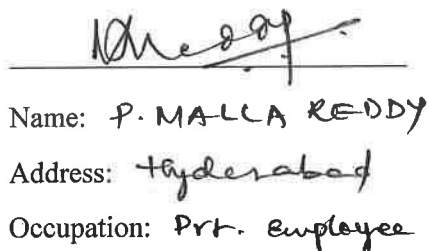 Name: P. MALLA REDDY
Address: Hyderabad
Occupation: Prt. employee